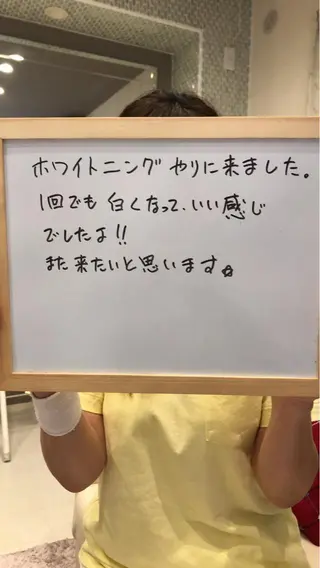 ホワイトニングやりに来ました。
1回でも白くなって、いい感じ
でしたよ!!
また来たいと思います。☆